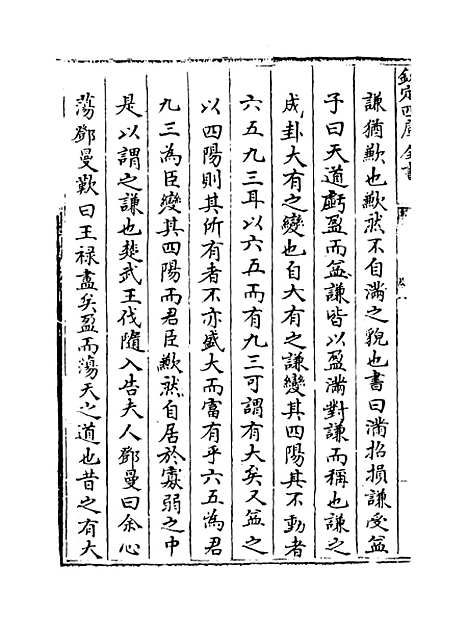 欽定四庫全書
謙猶歉也歉然不自滿之貌也書曰滿招損謙受益
子曰天道虧盈而益謙皆以盈滿對謙而稱也謙之
成卦大有之變也自大有之謙變其四陽其不動者
六五九三耳以六五而有九三可謂有大矣又益之
以四陽則其所有者不亦盛大而富有乎六五為君
九三為臣變其四陽而君臣歉然自居於寡弱之中
是以謂之謙也楚武王伐隨入告夫人鄧曼曰余心
蕩鄧曼歎曰王禄盡矣盈而蕩天之道也昔之有大